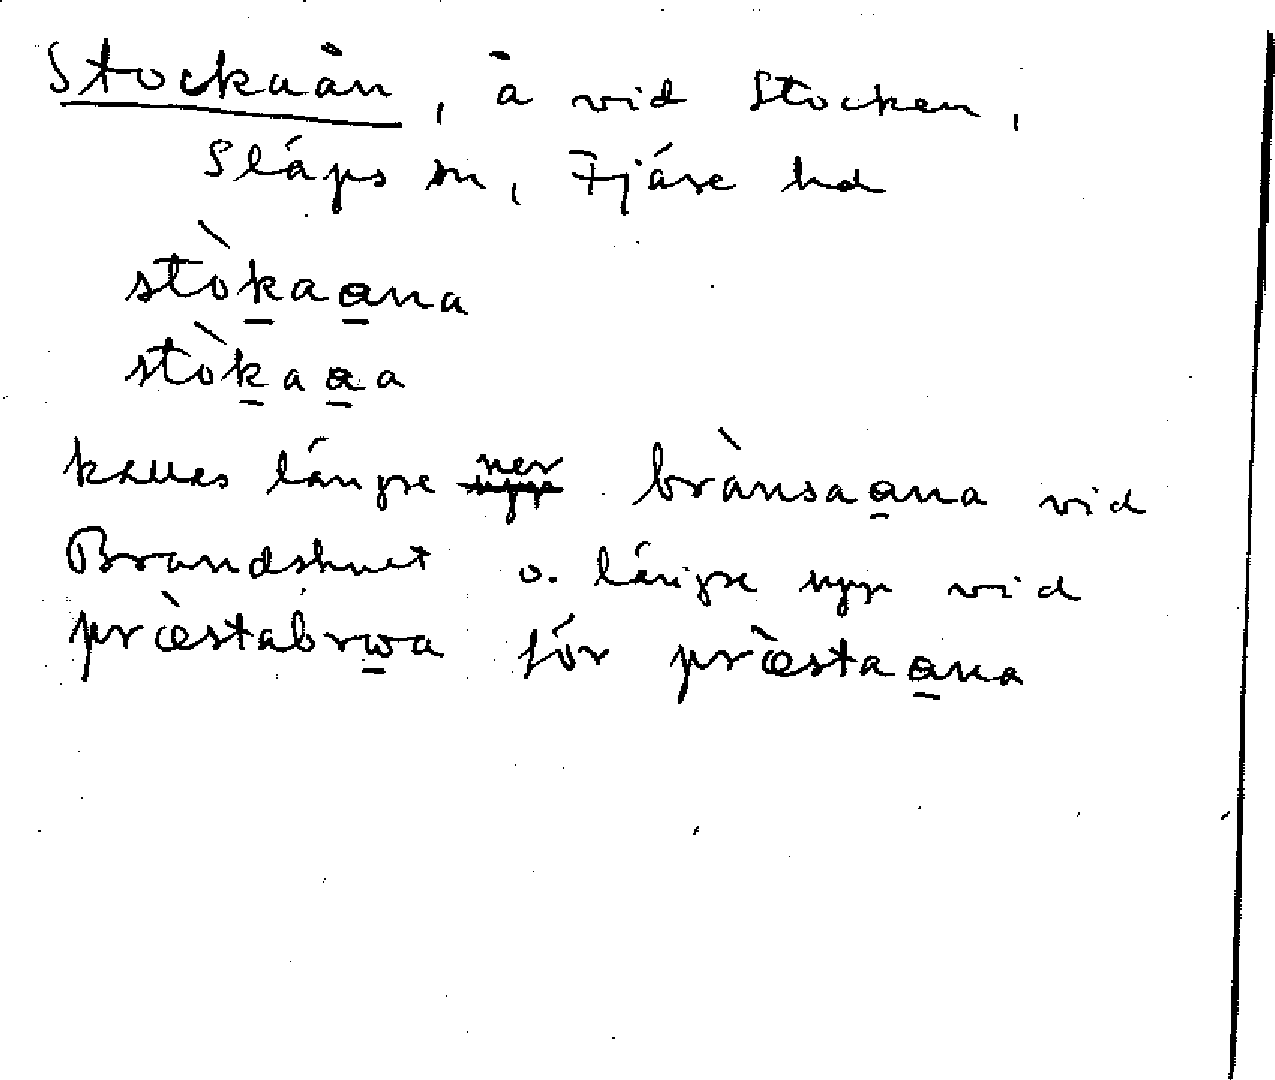 Stockaån, å vid Stocken,
Släps sn, Fjäre hd
stòkaana
stòkaaa
kallas längre ner brànsaana vid
Brandshult o. längre upp vid
pràestabrwa för pràestaana